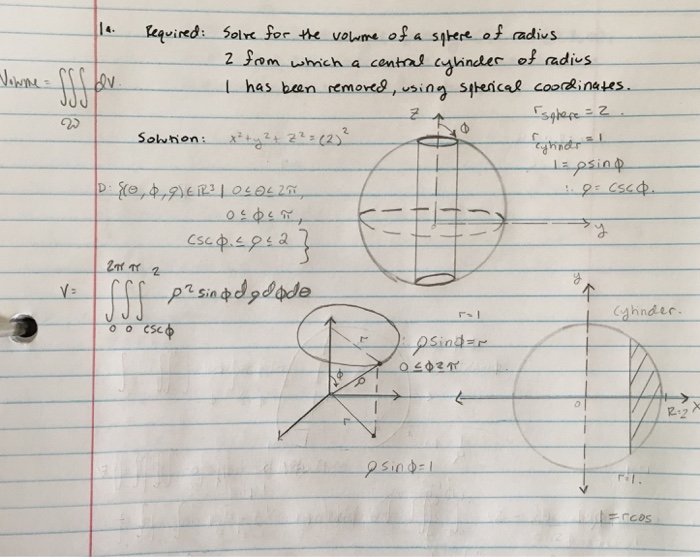 1a. Required: Solve for the volume of a sphere of radius
2 from which a central cylinder of radius
1 has been removed, using spherical coordinates.
Volume = ∭ dV.
Solution: x²+y²+z²=(2)²
z
ϕ
r sphere = 2.
r cylinder = 1
1=ρsinϕ
∴ ρ=cscϕ.
D: {(θ,ϕ,ρ)∈ℝ³ | 0≤θ≤2π,
0≤ϕ≤π,
cscϕ≤ρ≤2}
y
V= ∫₀^2π ∫₀^π ∫_cscϕ^2 ρ²sinϕdρdϕdθ
y
cylinder.
r=1
r
ρsinϕ=r
0≤ϕ2π
ϕ
ρ
r
0
R=2
x
ρsinϕ=1
r=1.
1=rcos